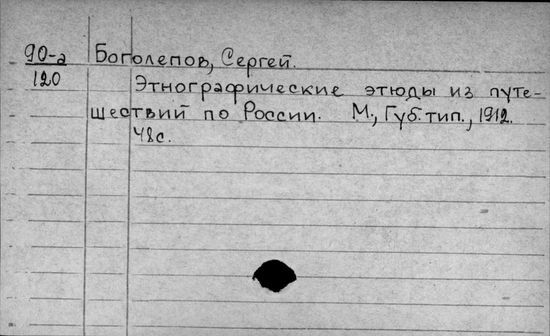 90-а Боголепов, Сергей.
120 Этнографические этюды из путе-
шествий по России. М., Губ. тип., 1912.
48с.